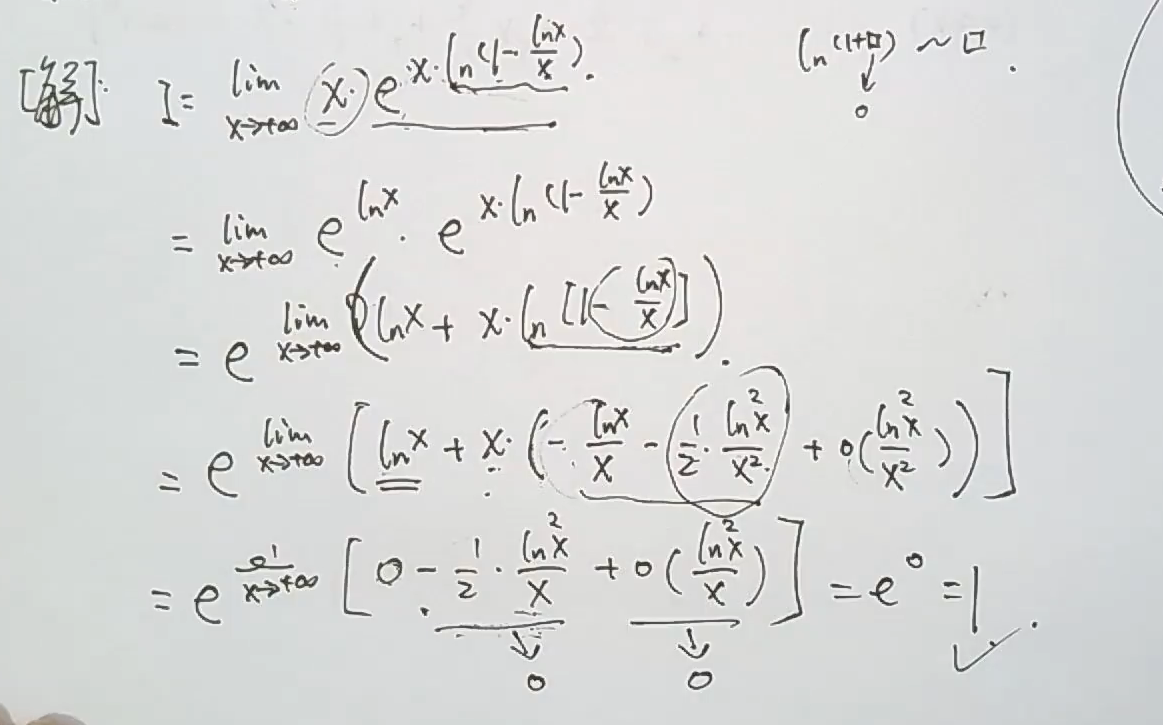 [解]: I = lim x→+∞ x · e^{x·ln(1 - lnx/x)}.
ln(1+□) ~ □.
↓
0
= lim x→+∞ e^{lnx} · e^{x·ln(1 - lnx/x)}
= e^{lim x→+∞ (lnx + x·ln[1 - lnx/x])}.
= e^{lim x→+∞ [lnx + x·(- lnx/x - 1/2 · ln²x/x² + o(ln²x/x²))]}
x→+∞ [0 - 1/2 · ln²x/x + o(ln²x/x)] = e^0 = 1.
↓ ↓
0 0